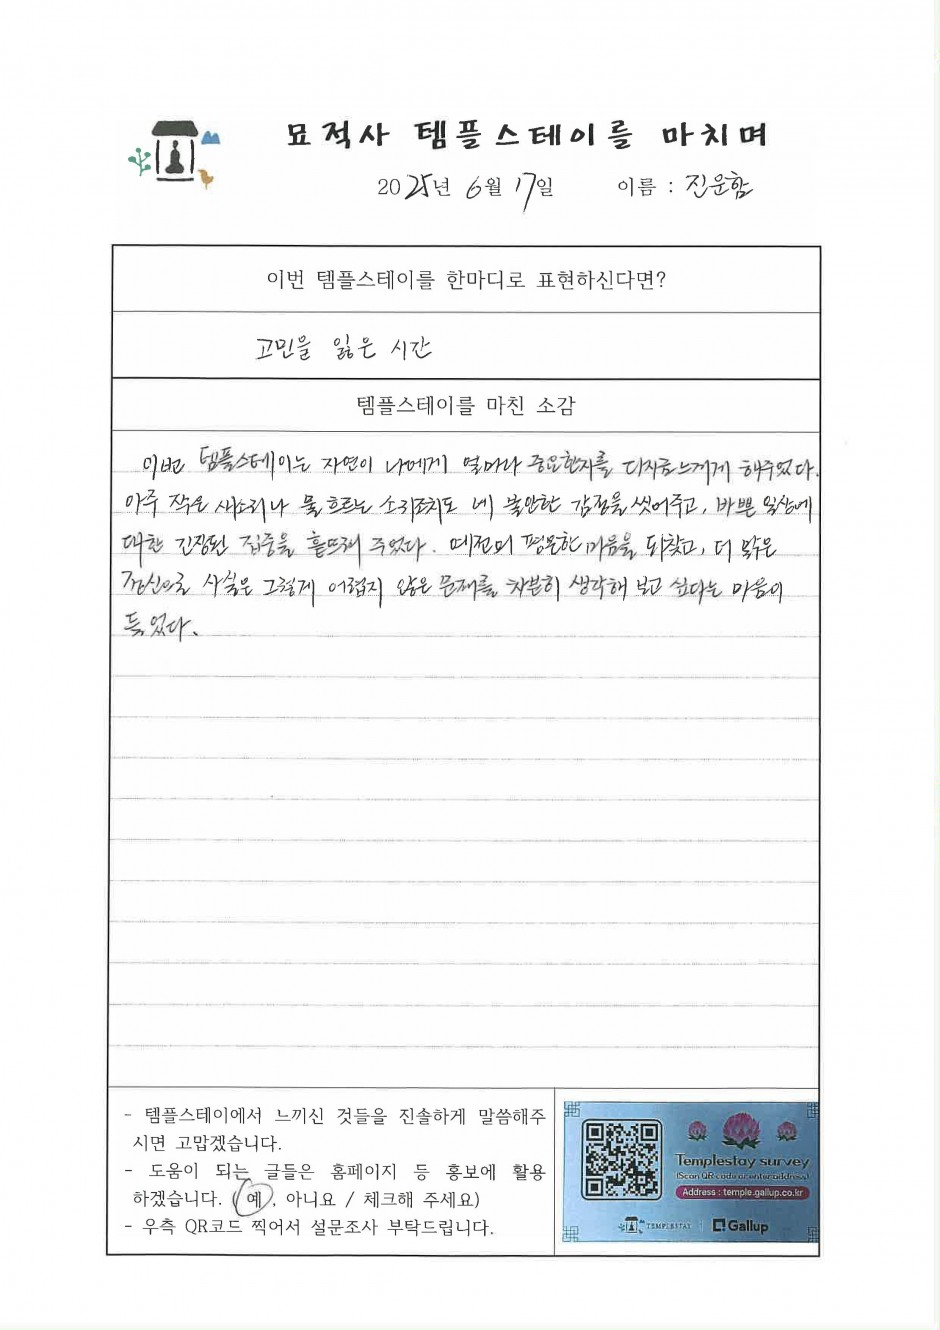 묘적사 템플스테이를 마치며
2025년 6월 17일 이름 : 진운함
이번 템플스테이를 한마디로 표현하신다면?
고민을 잃은 시간
템플스테이를 마친 소감
이번 템플스테이는 자연이 나에게 얼마나 중요한지를 다시금 느끼게 해주었다.
아주 작은 새소리나 물 흐르는 소리조차도 내 불안한 감정을 씻어주고, 바쁜 일상에
대한 긴장된 집중을 흩뜨려 주었다. 예전의 평온한 마음을 되찾고, 더 맑은
정신으로 사실은 그렇게 어렵지 않은 문제를 차분히 생각해 보고 싶다는 마음이
들었다.
- 템플스테이에서 느끼신 것들을 진솔하게 말씀해주
시면 고맙겠습니다.
- 도움이 되는 글들은 홈페이지 등 홍보에 활용
하겠습니다. (예, 아니요 / 체크해 주세요)
- 우측 QR코드 찍어서 설문조사 부탁드립니다.
Templestay survey
(Scan QR code or enter address)
Address : temple.gallup.co.kr
TEMPLESTAY | Gallup